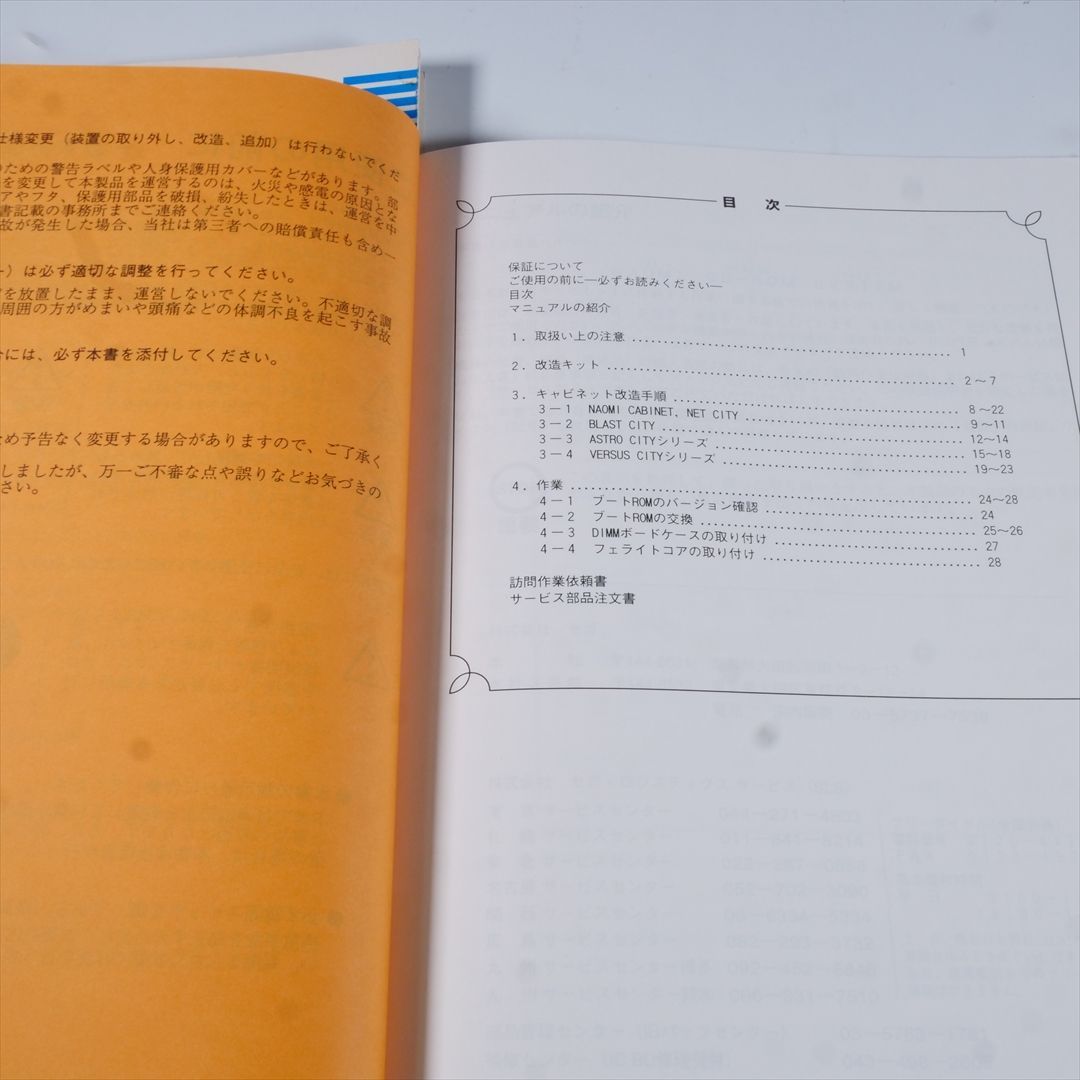 仕様変更（装置の取り外し、改造、追加）は行わないでくだ
のための警告ラベルや人身保護用カバーなどがあります。部
を変更して本製品を運営するのは、火災や感電の原因とな
アやフタ、保護用部品を破損、紛失したときは、運営を中
書記載の事務所までご連絡ください。
故が発生した場合、当社は第三者への賠償責任も含め一
ー）は必ず適切な調整を行ってください。
を放置したまま、運営しないでください。不適切な調
周囲の方がめまいや頭痛などの体調不良を起こす事故
合には、必ず本書を添付してください。
ため予告なく変更する場合がありますので、ご了承く
しましたが、万一ご不審な点や誤りなどお気づきの
さい。
目 次
保証について
ご使用の前に―必ずお読みください―
目次
マニュアルの紹介
1．取扱い上の注意 .......... 1
2．改造キット .......... 2～7
3．キャビネット改造手順 .......... 8～22
3－1 NAOMI CABINET、NET CITY .......... 9～11
3－2 BLAST CITY .......... 12～14
3－3 ASTRO CITYシリーズ .......... 15～18
3－4 VERSUS CITYシリーズ .......... 19～23
4．作業 .......... 24～28
4－1 ブートROMのバージョン確認 .......... 24
4－2 ブートROMの交換 .......... 25～26
4－3 DIMMボードケースの取り付け .......... 27
4－4 フェライトコアの取り付け .......... 28
訪問作業依頼書
サービス部品注文書